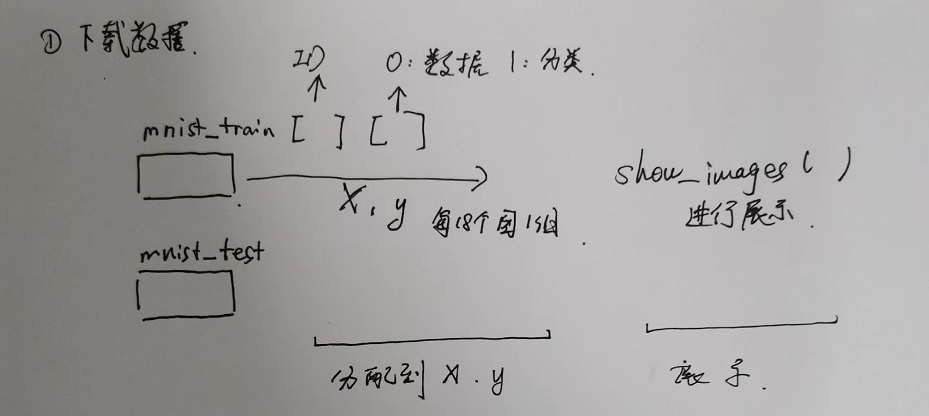 ① 下载数据.
ID 0: 数据 1: 分类.
mnist_train [ ] [ ]
X, y 每18个图1组.
show_images( )
进行展示.
mnist_test
分配到 X . y
展示.